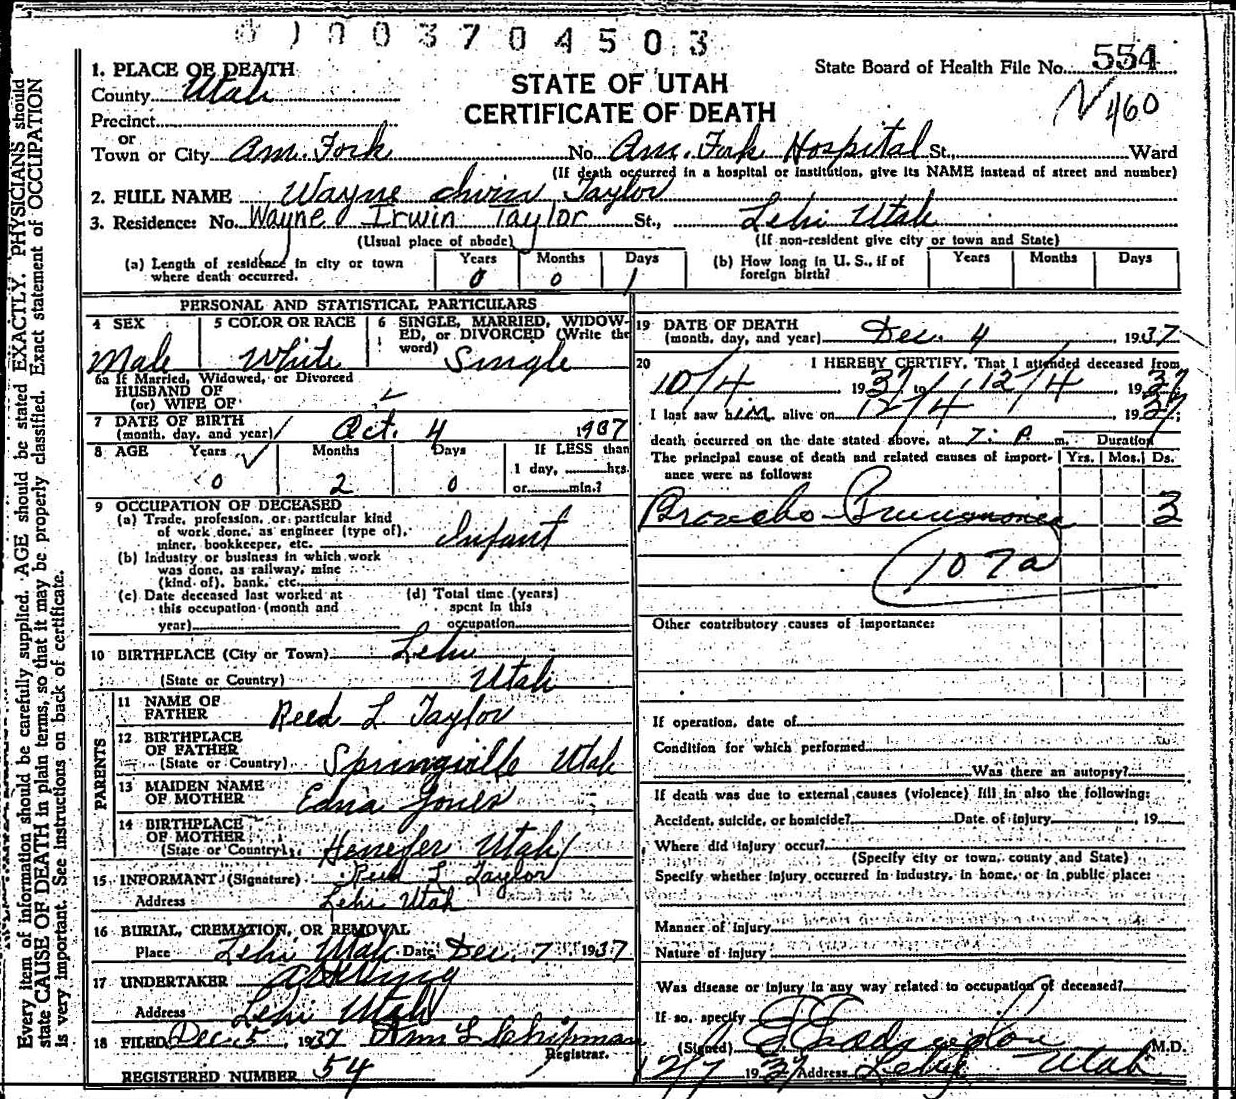 0 0 3 7 0 4 5 0 3
STATE OF UTAH
CERTIFICATE OF DEATH
State Board of Health File No. 554
460
1. PLACE OF DEATH
County Utah
Precinct
or
Town or City Am. Fork No. Am. Fork Hospital St., Ward
(If death occurred in a hospital or institution, give its NAME instead of street and number)
2. FULL NAME Wayne Taylor
3. Residence: No. Wayne Irwin Taylor St., Lehi Utah
(Usual place of abode) (If non-resident give city or town and State)
(a) Length of residence in city or town where death occurred. Years 0 Months 0 Days 1
(b) How long in U. S., if of foreign birth? Years Months Days
PERSONAL AND STATISTICAL PARTICULARS
4 SEX Male
5 COLOR OR RACE White
6 SINGLE, MARRIED, WIDOWED, or DIVORCED (Write the word) Single
6a If Married, Widowed, or Divorced
HUSBAND OF
(or) WIFE OF
7 DATE OF BIRTH
(month, day, and year) Oct. 4 1937
8 AGE Years 0 Months 2 Days 0 If LESS than
1 day, hrs.
or min.?
9 OCCUPATION OF DECEASED
(a) Trade, profession, or particular kind
of work done, as engineer (type of),
miner, bookkeeper, etc. Infant
(b) Industry or business in which work
was done, as railway, mine
(kind of), bank, etc.
(c) Date deceased last worked at
this occupation (month and
year)
(d) Total time (years)
spent in this
occupation
10 BIRTHPLACE (City or Town) Lehi
(State or Country) Utah
PARENTS
11 NAME OF
FATHER Reed L Taylor
12 BIRTHPLACE
OF FATHER
(State or Country) Springville Utah
13 MAIDEN NAME
OF MOTHER Edna Jones
14 BIRTHPLACE
OF MOTHER
(State or Country) Henefer Utah
15 INFORMANT (Signature) Reed L Taylor
Address Lehi Utah
16 BURIAL, CREMATION, OR REMOVAL
Place Lehi Utah Date Dec. 7 1937
17 UNDERTAKER
Address Lehi Utah
18 FILED Dec. 5, 1937 Ann L Chipman
Registrar.
REGISTERED NUMBER 54
19 DATE OF DEATH
(month, day, and year) Dec. 4 1937
20 I HEREBY CERTIFY, That I attended deceased from
10/4 1937 to 12/4 1937
I last saw him alive on 12/4 1937;
death occurred on the date stated above, at 7: P. m. Duration
The principal cause of death and related causes of importance were as follows: Yrs. Mos. Ds.
Broncho-Pneumonia 3
107a
Other contributory causes of importance:
If operation, date of
Condition for which performed
Was there an autopsy?
If death was due to external causes (violence) fill in also the following:
Accident, suicide, or homicide? Date of injury , 19
Where did injury occur?
(Specify city or town, county and State)
Specify whether injury occurred in industry, in home, or in public place:
Manner of injury
Nature of injury
Was disease or injury in any way related to occupation of deceased?
If so, specify
(Signed) M.D.
12/7 1937 Address Lehi Utah
Every item of information should be carefully supplied. AGE should be stated EXACTLY. PHYSICIANS should
state CAUSE OF DEATH in plain terms, so that it may be properly classified. Exact statement of OCCUPATION
is very important. See instructions on back of certificate.